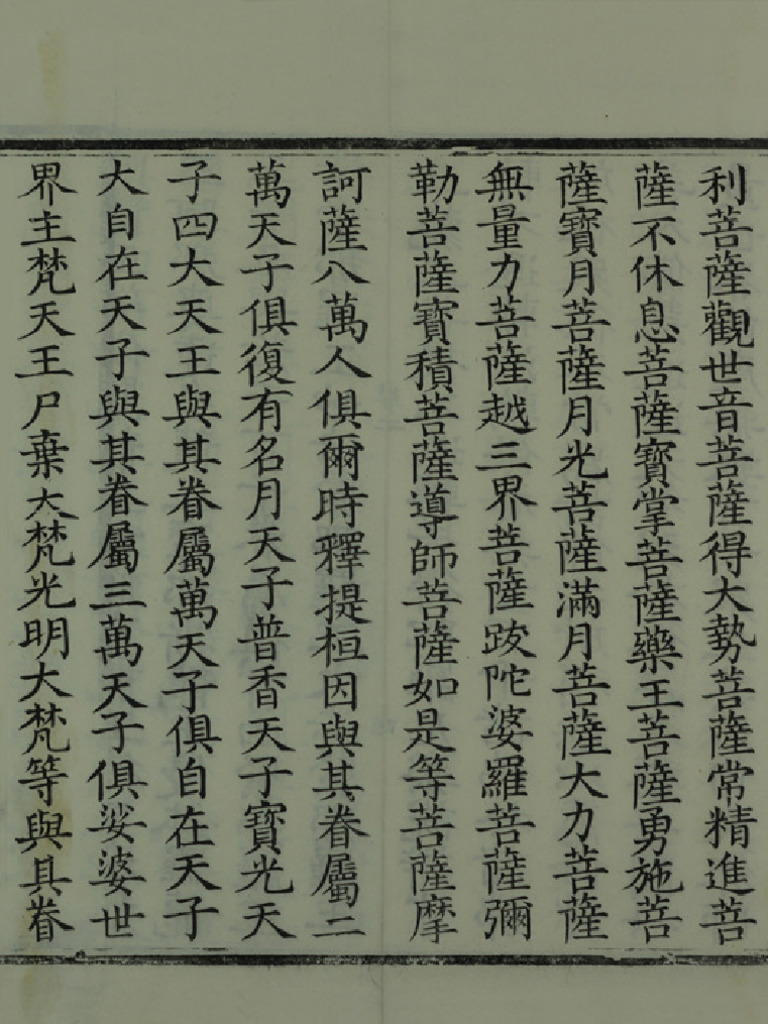 利菩薩觀世音菩薩得大勢菩薩常精進菩
薩不休息菩薩寶掌菩薩藥王菩薩勇施菩
薩寶月菩薩月光菩薩滿月菩薩大力菩薩
無量力菩薩越三界菩薩跋陀婆羅菩薩彌
勒菩薩寶積菩薩導師菩薩如是等菩薩摩
訶薩八萬人俱爾時釋提桓因與其眷屬二
萬天子俱復有名月天子普香天子寶光天
子四大天王與其眷屬萬天子俱自在天子
大自在天子與其眷屬三萬天子俱娑婆世
界主梵天王尸棄大梵光明大梵等與其眷